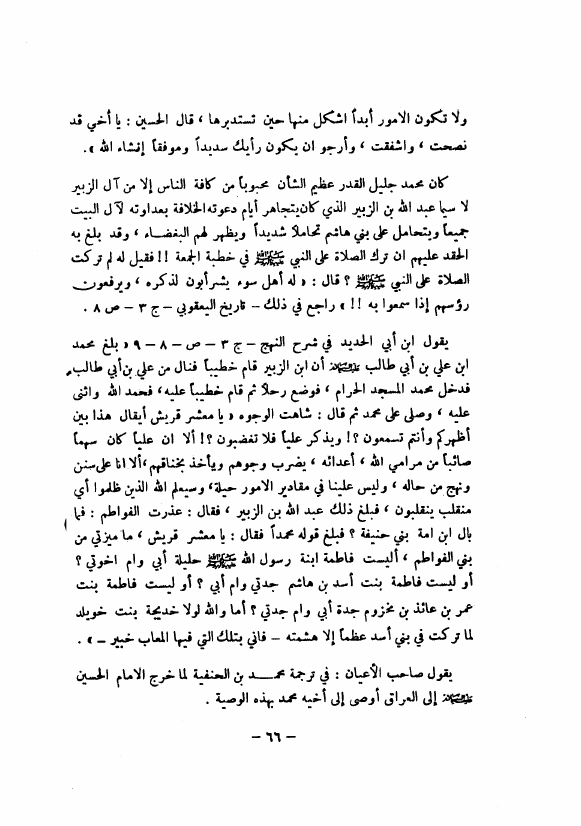 ولا تكون الامور أبداً اشكل منها حين تستدبرها ، قال الحسين : يا أخي قد
نصحت ، واشفقت ، وأرجو ان يكون رأيك سديداً وموفقاً إنشاء الله » .
كان محمد جليل القدر عظيم الشأن محبوباً من كافة الناس إلا من آل الزبير
لا سيما عبد الله بن الزبير الذي كان يتجاهر أيام دعوته الخلافة بعداوته لآل البيت
جميعاً ويتحامل على بني هاشم تحاملا شديداً ويظهر لهم البغضاء ، وقد بلغ به
الحقد عليهم ان ترك الصلاة على النبي ﷺ في خطبة الجمعة !! فقيل له لم تركت
الصلاة على النبي ﷺ ؟ قال : « له أهل سوء يشرأبون لذكره ، ويرفعون
رؤسهم إذا سمعوا به !! » راجع في ذلك – تاريخ اليعقوبي – ج ٣ – ص ٨ .
يقول ابن أبي الحديد في شرح النهج – ج ٣ – ص – ٨ – ٩ « بلغ محمد
ابن علي بن أبي طالب أن ابن الزبير قام خطيباً فنال من علي بن أبي طالب ،
فدخل محمد المسجد الحرام ، فوضع رحلاً ثم قام خطيباً عليه ، فحمد الله واثنى
عليه ، وصلى على محمد ثم قال : شاهت الوجوه « يا معشر قريش أيقال هذا بين
أظهركم وأنتم تسمعون ؟! ويذكر علياً فلا تغضبون ؟! ألا ان علياً كان سهماً
صائباً من مرامي الله ، أعدائه ، يضرب وجوهم ويأخذ بخناقهم ، ألا انا على سنن
ونهج من حاله ، وليس علينا في مقادير الامور حيلة ، وسيعلم الله الذين ظلموا أي
منقلب ينقلبون ، فبلغ ذلك عبد الله بن الزبير ، فقال : عذرت الفواطم : فما
بال ابن امة بني حنيفة ؟ فبلغ قوله محمداً فقال : يا معشر قريش ، ما ميزتي من
بني الفواطم ، أليست فاطمة ابنة رسول الله ﷺ حليلة أبي وام اخوتي ؟
أو ليست فاطمة بنت أسد بن هاشم جدتي وام أبي ؟ أو ليست فاطمة بنت
عمر بن عائذ بن مخزوم جدة أبي وام جدتي ؟ أما والله لولا خديجة بنت خويلد
لما تركت في بني أسد عظماً إلا هشمته – فاني بتلك التي فيها المعاب خبير – » .
يقول صاحب الأعيان : في ترجمة محمد بن الحنفية لما خرج الامام الحسين
إلى العراق أوصى إلى أخيه محمد بهذه الوصية .
– ٦٦ –